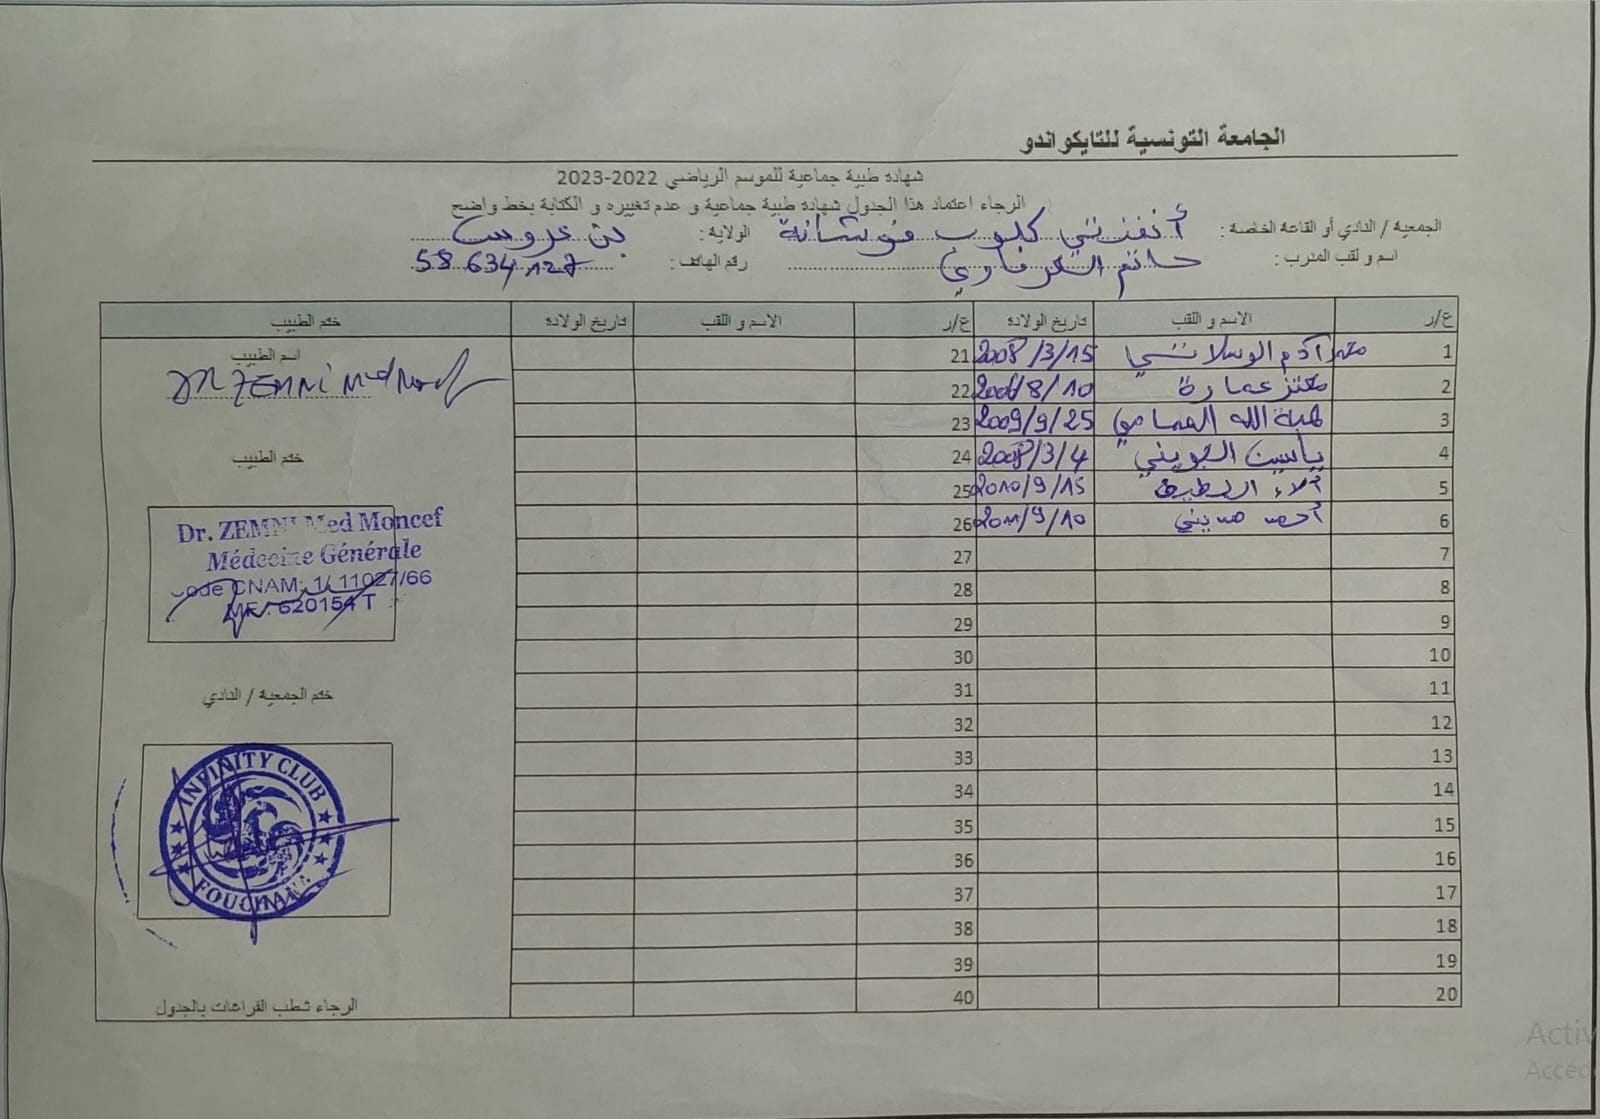 الجامعة التونسية للتايكواندو
شهادة طبية جماعية للموسم الرياضي 2022-2023
الرجاء اعتماد هذا الجدول شهادة طبية جماعية و عدم تغييره و الكتابة بخط واضح
الجمعية / النادي أو القاعة الخاصة : أنفنتي كلوب فوشانة الولاية : بن عروس
اسم و لقب المدرب : حاتم رقم الهاتف : 58.634.127
ع/ر الاسم و اللقب تاريخ الولادة ع/ر الاسم و اللقب تاريخ الولادة ختم الطبيب
1 آدم الوسلاتي 2008/3/15 21
2 معتز عمارة 10/8/ 22
3 هبة الله 2009/9/25 23
4 ياسين الجويني 2008/3/4 24
5 آلاء 2010/9/15 25
6 أحمد 2011/9/10 26
7 27
8 28
9 29
10 30
11 31
12 32
13 33
14 34
15 35
16 36
17 37
18 38
19 39
20 40
اسم الطبيب
DR ZEMNI Med
ختم الطبيب
Dr. ZEMNI Med Moncef
Médecine Générale
Code CNAM: 1/ 11027/66
MF: 620154 T
ختم الجمعية / النادي
INFINITY CLUB
FOUCHANA
الرجاء شطب الفراغات بالجدول
Activ
Accéd